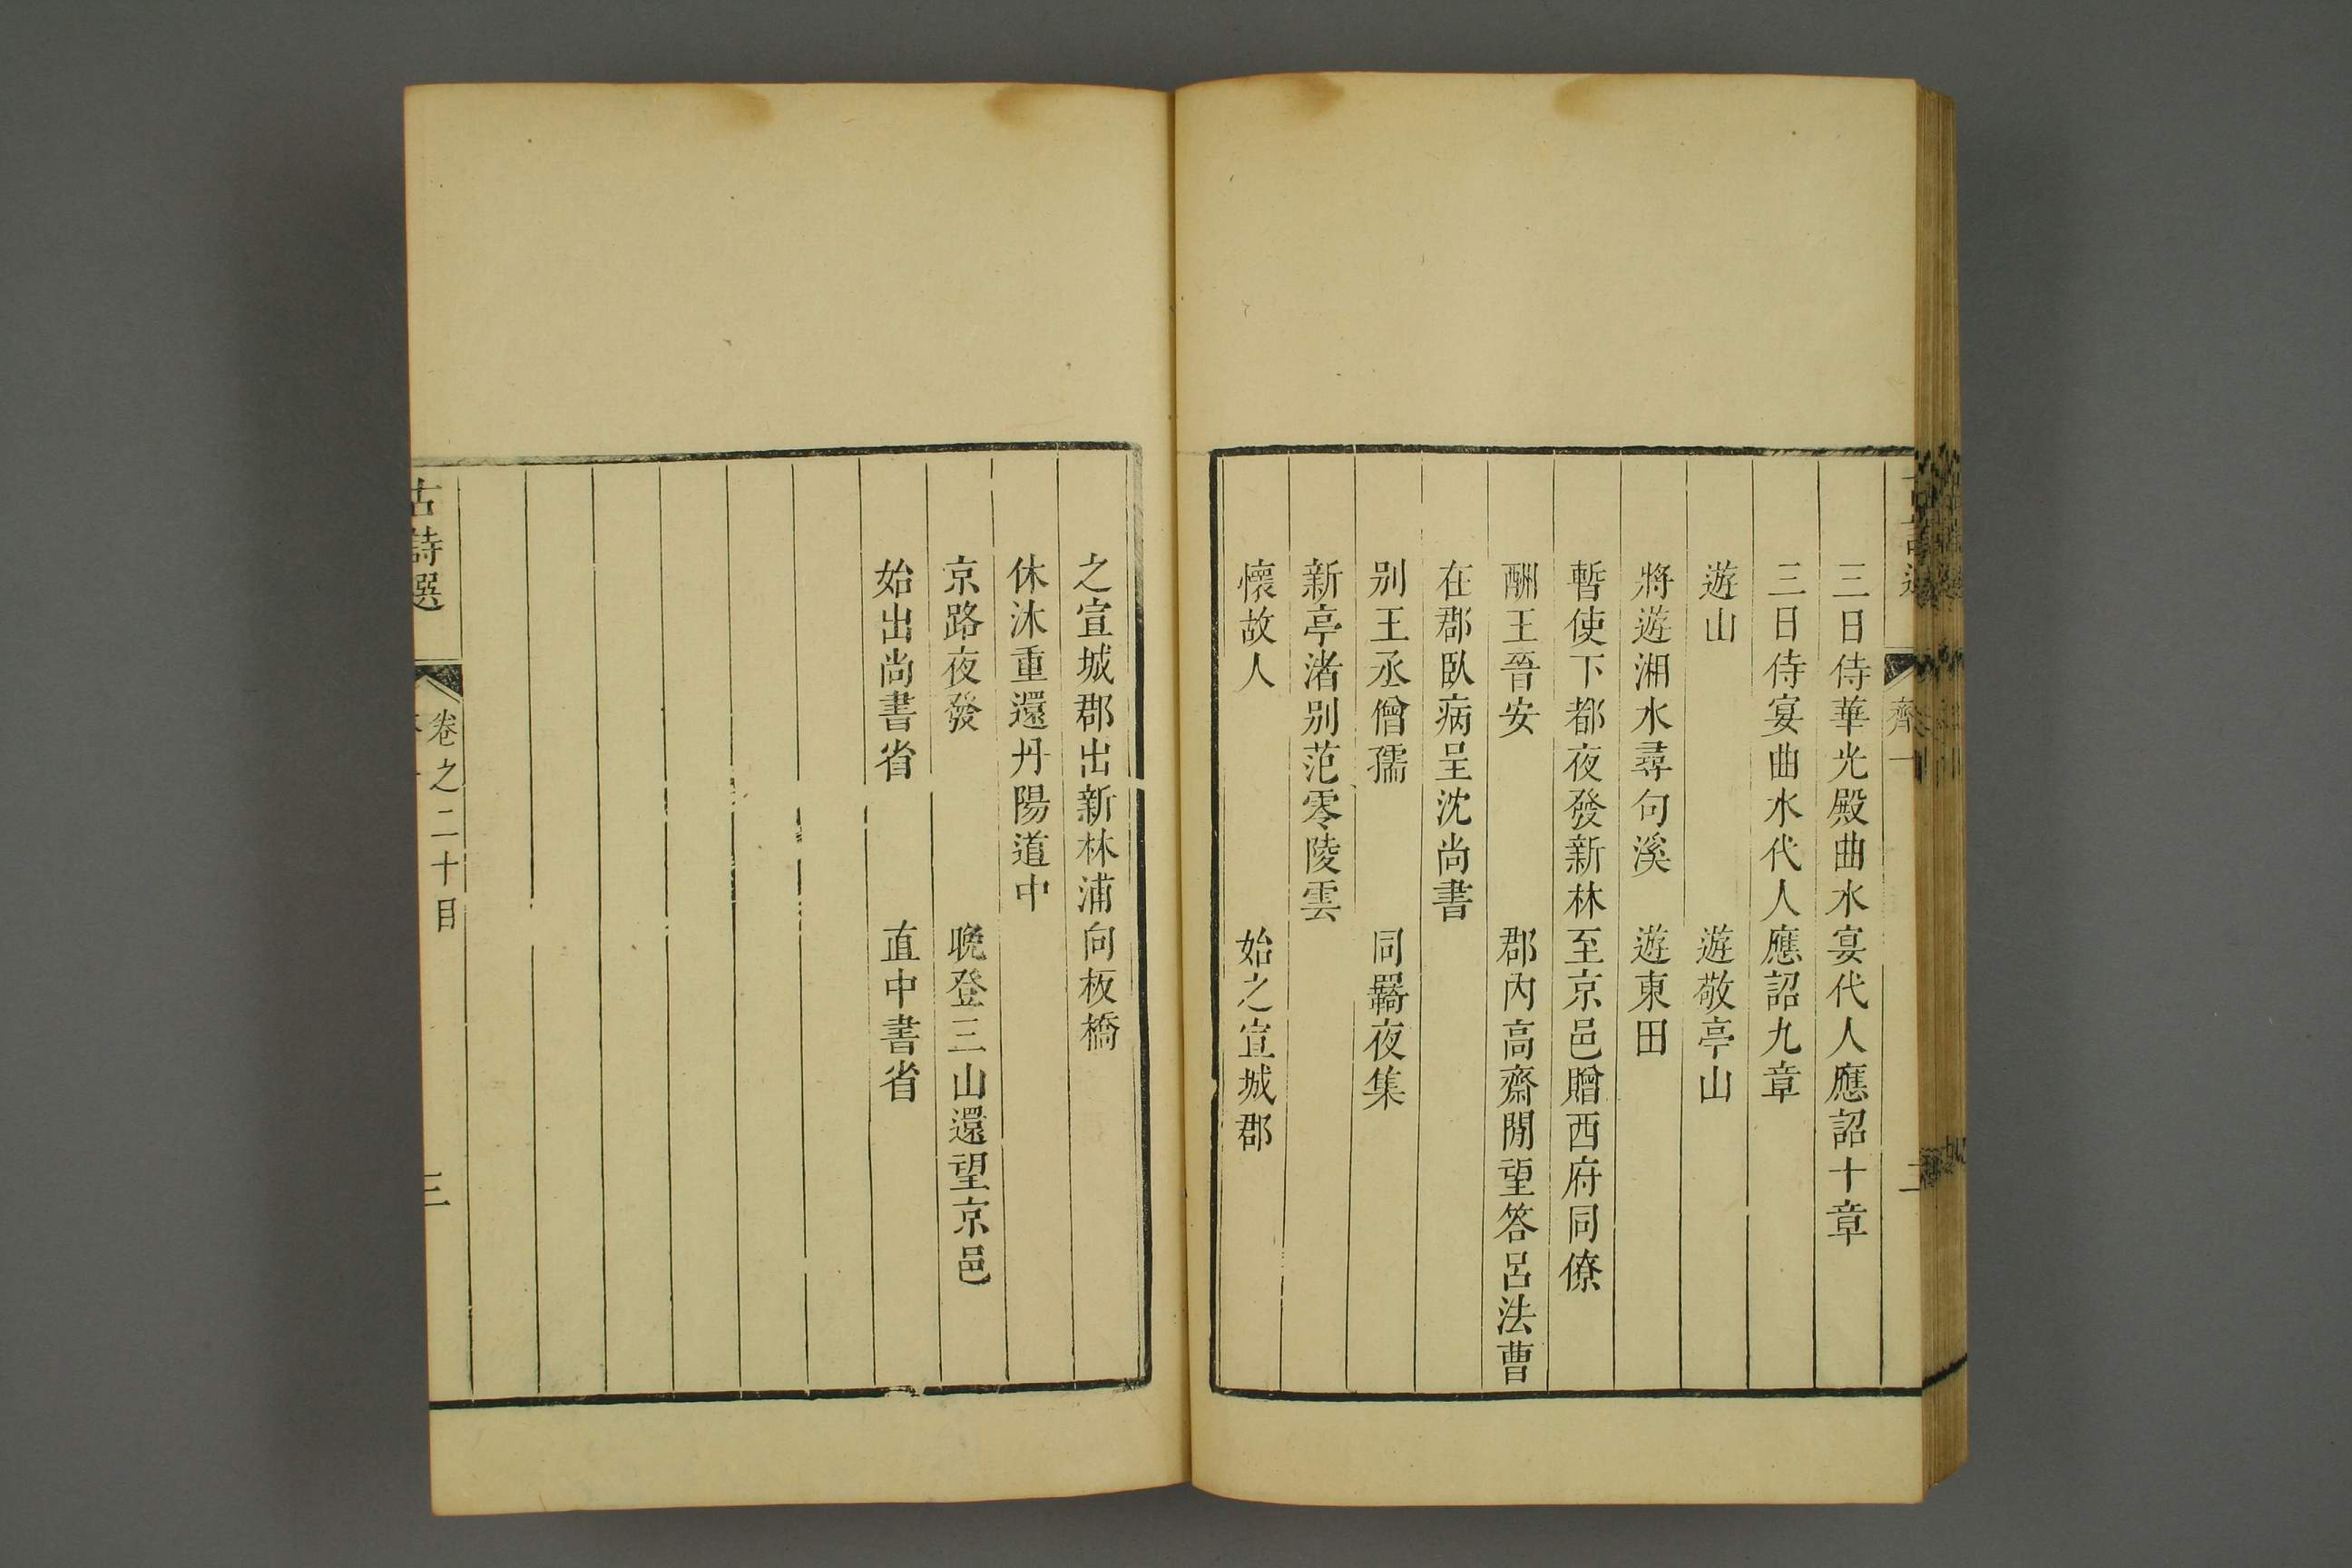 齊一
三日侍華光殿曲水宴代人應詔十章
三日侍宴曲水代人應詔九章
遊山　遊敬亭山
將遊湘水尋句溪　遊東田
暫使下都夜發新林至京邑贈西府同僚
酬王晉安　郡內高齋閒望答呂法曹
在郡臥病呈沈尚書
别王丞僧孺　同羇夜集
新亭渚别范零陵雲
懷故人　始之宣城郡
之宣城郡出新林浦向板橋
休沐重還丹陽道中
京路夜發　晚登三山還望京邑
始出尚書省　直中書省
古詩選　卷之二十目　三